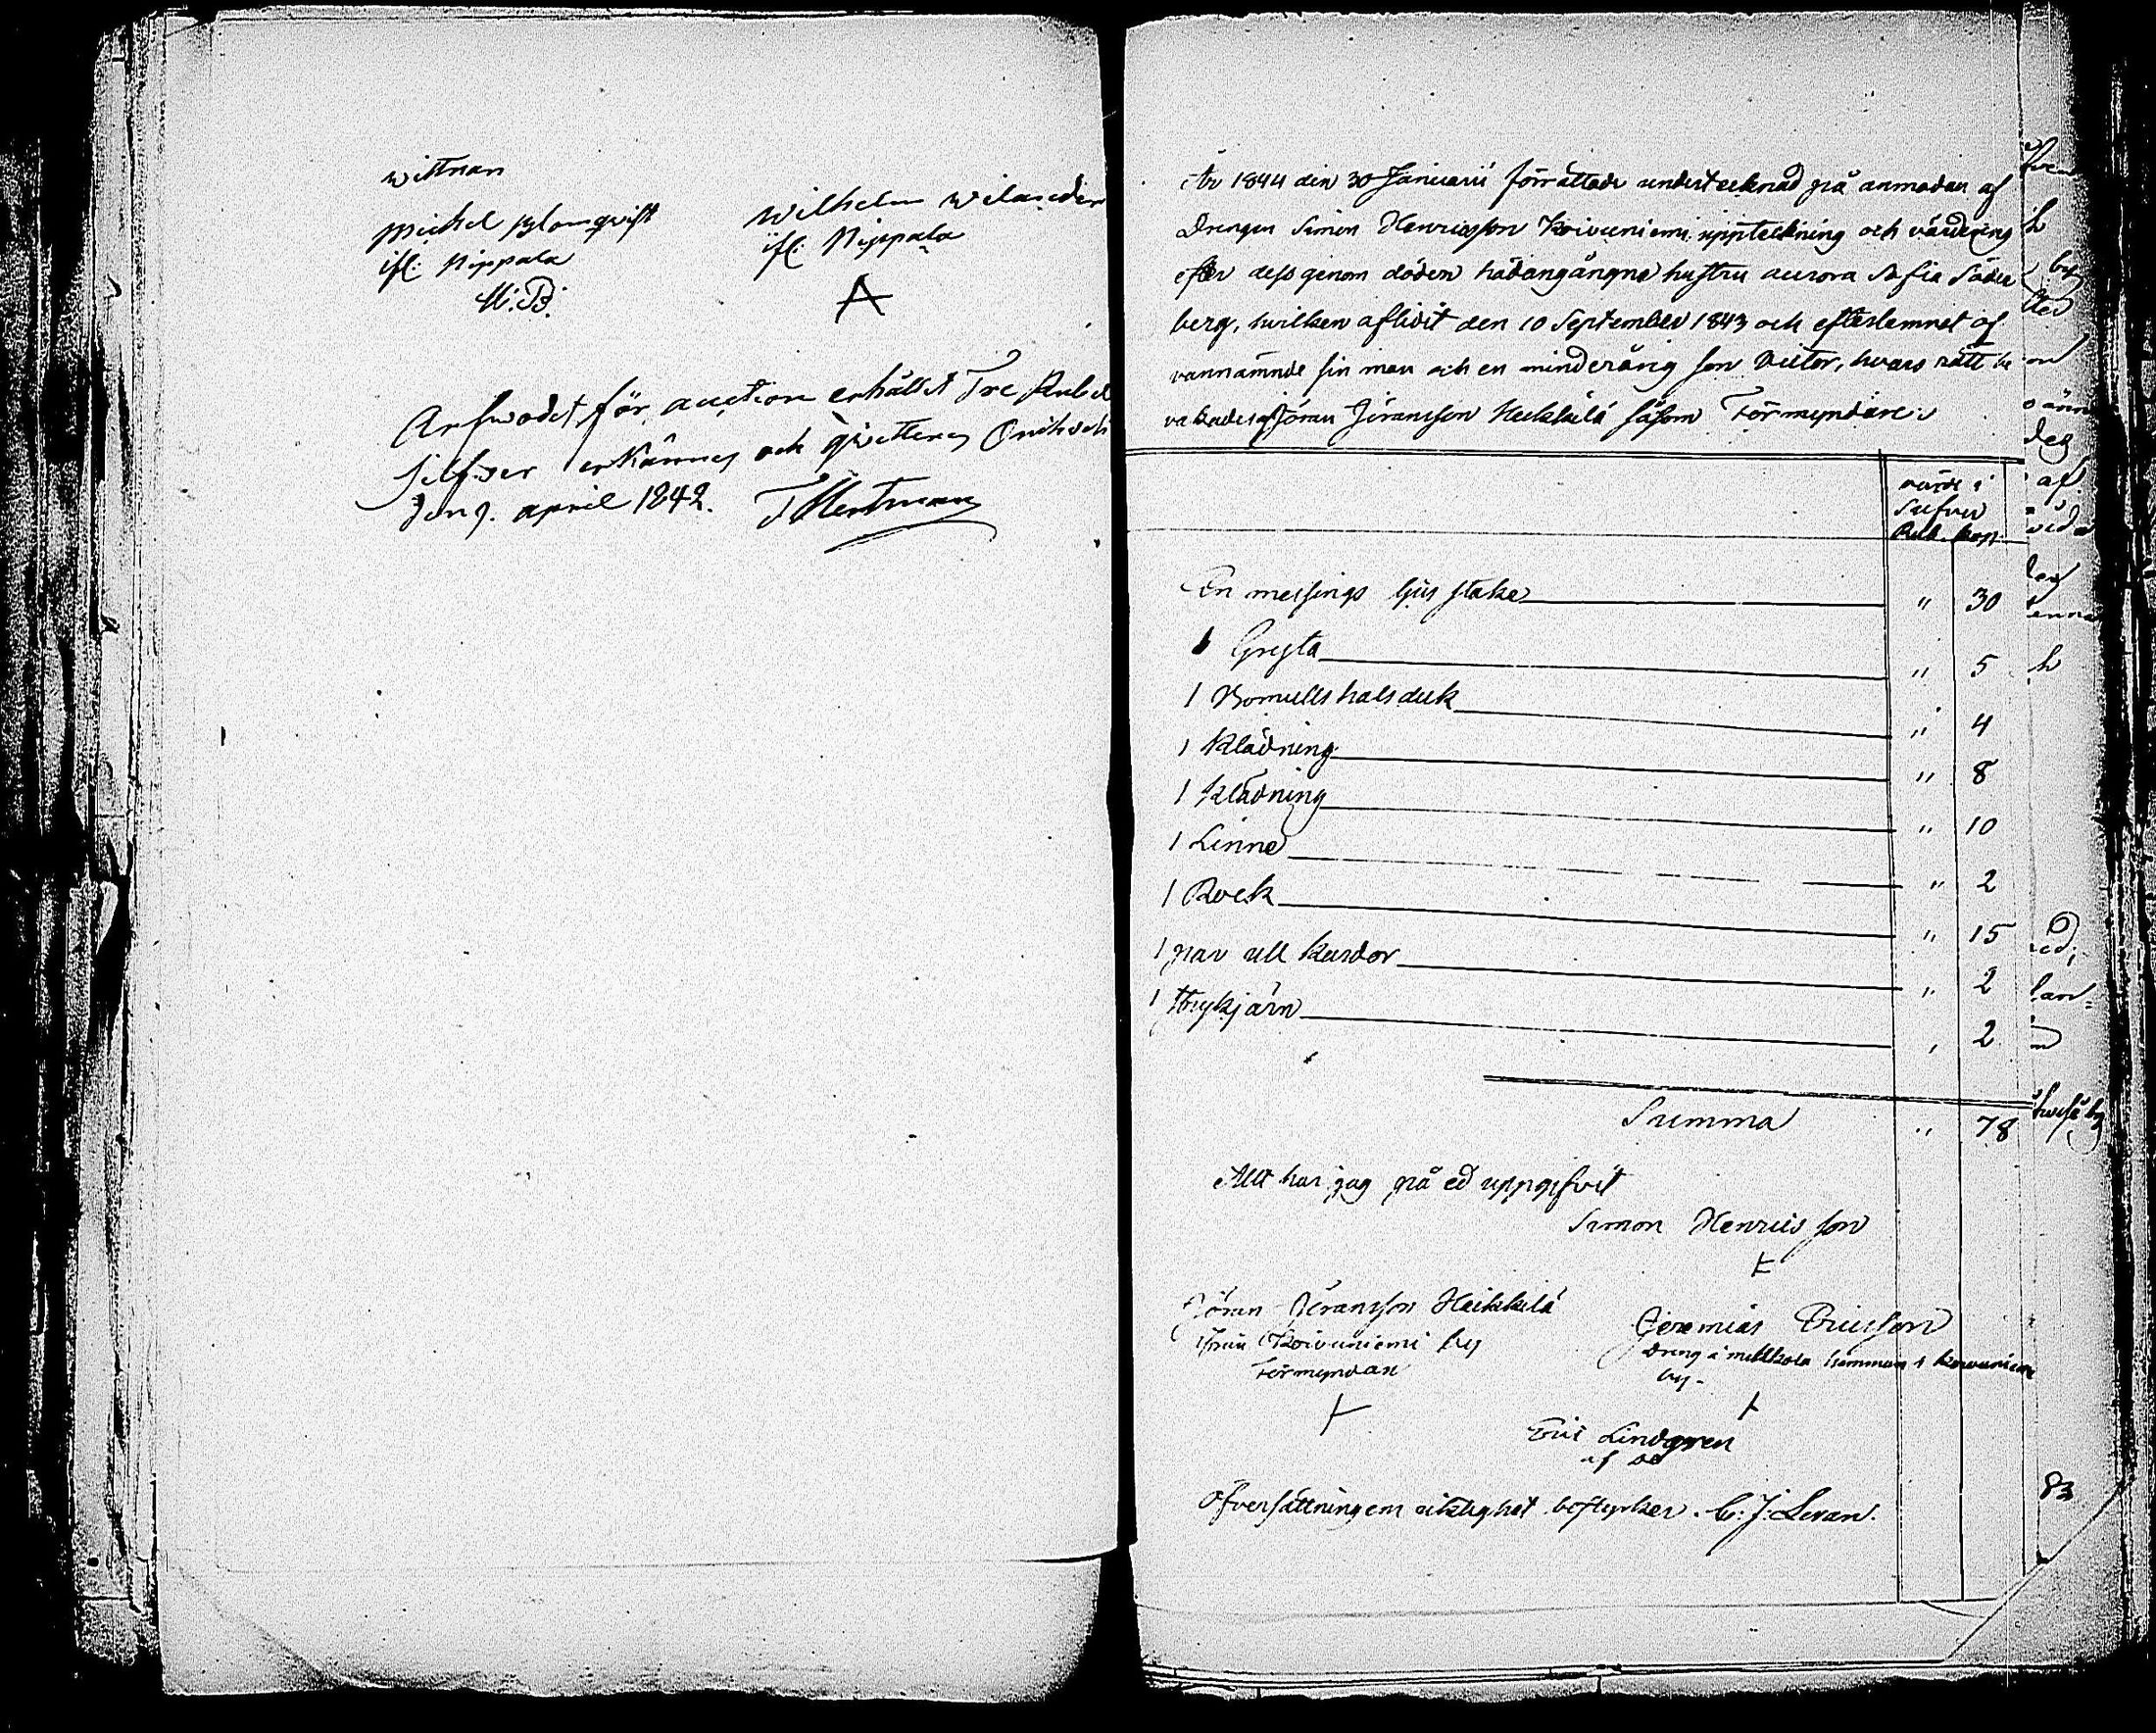 wittnar
Michel Blomqvist
ifl. Nippala
M.B.
Wilhelm Wilander
ifl. Nippala
A
Arfwodet för auction erhållit Tre Rubel
Silfver erkännes och qvitteras
den 9. april 1842.
År 1844 den 30 Januarii förrättade undertecknad på anmodan af
Drengen Simon Henricsson Koivuniemi uppteckning och värdering
efter dess genom döden hädangångna hustru Aurora Sofia Söder
berg, hvilken aflidit den 10 September 1843 och efterlemnat of
vannämnde sin man och en minderårig son Victor, hvars rätt be
vakades af Jöran Jöransson Heikkilä såsom Förmyndare.
värde i
Silfver
Rub. kop.
En messings ljus stake " 30
1 Gryta " 5
1 Bomulls halsduk " 4
1 Klädning " 8
1 Klädning " 10
1 Linne " 2
1 Rock " 15
1 par ull kardor " 2
1 strykjärn " 2
Summa " 78
Allt har jag på ed uppgifvit
Simon Henricsson
Jöran Jöransson Heikkilä
från Koivuniemi by
Förmyndare
Jeremias Ericsson
dreng å hemman i Koivuniemi
by.
Eric Lindgren
Öfversättningens riktighet bestyrker. C. J. Levan.
83